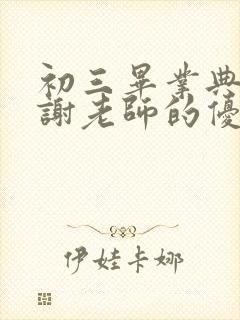 初三畢業典
謝老師的優
伊娃卡娜